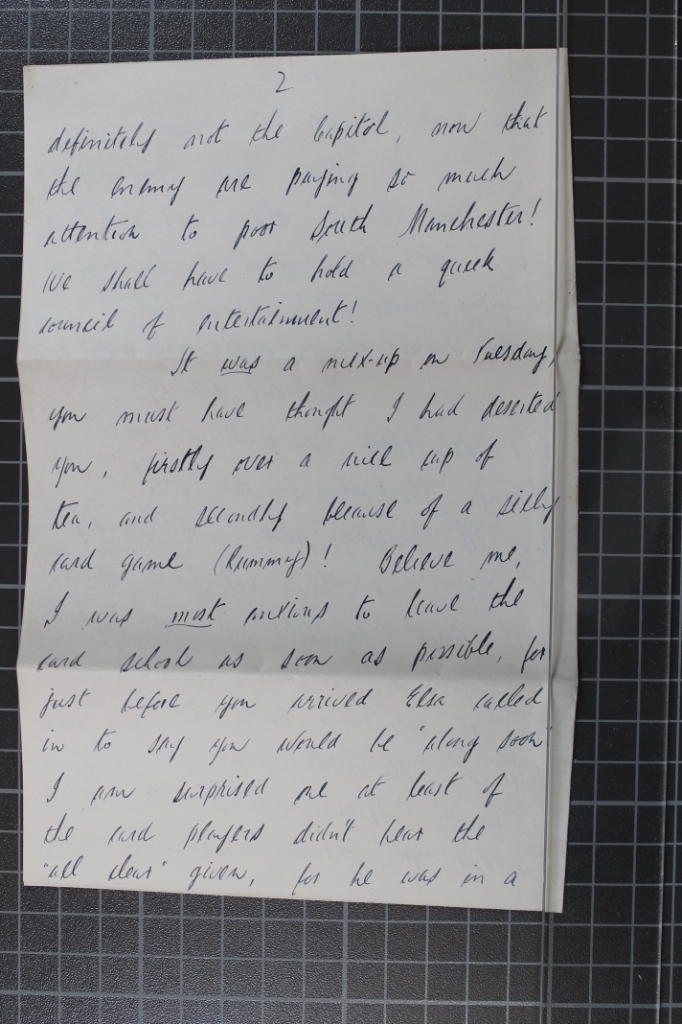 2
definitely not the Capitol, now that
the enemy are paying so much
attention to poor South Manchester!
We shall have to hold a quick
council of entertainment!
It was a mix-up on Tuesday,
you must have thought I had deserted
you, firstly over a nice cup of
tea, and secondly because of a silly
card game (Rummy)! Believe me,
I was most anxious to leave the
card school as soon as possible, for
just before you arrived Elsa called
in to say you would be "along soon"
I am surprised one at least of
the card players didn't hear the
"all clear" given, for he was in a